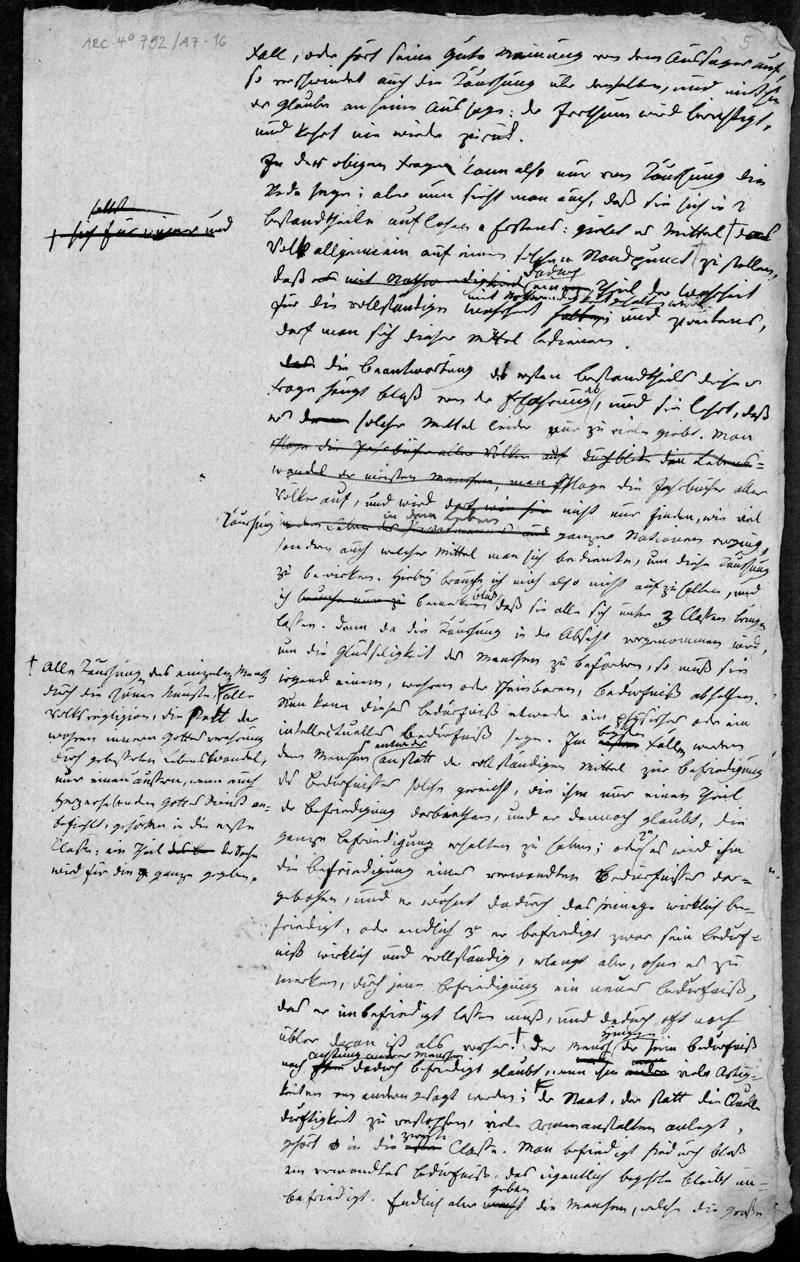 ARC. 4° 792/A7-16
5
Fall, oder hört seine gute Meinung von dem Aussager auf,
so verschwindet auch die Täuschung über denselben, und mit ihr
der Glaube an seine Aussage: der Irrthum wird berichtigt,
und kehrt nie wieder zurück.
In der obigen Frage kann also nur von Täuschung die
Rede seyn; aber nun sieht man auch, daß sie sich in 2
Bestandtheile auflösen. Erstens: giebt es Mittel † das
Volk allgemein auf einen solchen Standpunct zu stellen,
daß mit Nothwendigkeit dadurch einen Theil der Wahrheit
für die vollständige Wahrheit und zweitens,
darf man sich dieser Mittel bedienen.
selbst
† sich für immer und
das die Beantwortung des ersten Bestandtheils dieser
Frage hängt blos von der Erfahrung ab, und sie lehrt, daß
es solcher Mittel leider nur zu viele giebt. Man
schlage die Jahrbücher aller Völker auf durchblicke den Lebens-
wandel der meisten Menschen, man schlage die Jahrbücher aller
Völker auf, und wird nicht nur finden, wie viel
Täuschung in dem Leben ganzer Nationen vorging,
sondern auch welcher Mittel man sich bediente, um diese Täuschung
zu bewirken. Hiebey brauche ich mich also nicht aufzuhalten, und
ich bemerke blos daß sie alle sich unter 3 Classen bringen
lassen. Denn da die Täuschung in der Absicht vorgenommen wird,
um die Glückseligkeit des Menschen zu befördern, so muß sie
irgend einem, wahren oder scheinbaren, Bedürfniß abhelfen.
Nun kann dieses Bedürfniß etweder ein physisches oder ein
intellectuelles Bedürfniß seyn. In beyden Fällen werden
dem Menschen entweder anstatt der vollständigen Mittel zur Befriedigung
des Bedürfnisses solche gereicht, die ihm nur einen Theil
der Befriedigung darbiethen, und er dennoch glaubt, die
ganze Befriedigung erhalten zu haben; oder 2) es wird ihm
die Befriedigung eines verwandten Bedürfnisses dar-
gebothen, und er wähnt dadurch das seinige wirklich be-
friedigt, oder endlich 3 er befriedigt zwar sein Bedürf-
niß wirklich und vollständig, erlangt aber, ohne es zu
merken, durch jene Befriedigung ein neues Bedürfniß,
das er unbefriedigt lassen muß, und dadurch oft noch
übler daran ist als vorher. † Der Mensch der sein Bedürfniß
nach Achtung anderer Menschen dadurch befriedigt glaubt, wenn ihm viele Artig-
keiten von andern gesagt werden; der Staat, der statt die Quelle
Dürftigkeit zu verstopfen, viele Armenanstalten anlegt,
gehört in die zweyte Classe. Man befriedigt hiedurch blos
ein verwandtes Bedürfniß, das eigentlich bleibt un-
befriedigt. Endlich aber geben die Menschen, welche die große
† Alle Täuschung des einzelnen Menschen
durch die schönen Künste, alle
Volksreligion, die statt der
wahren innern Gottesverehrung
durch gebesserten Lebenswandel,
nur einen äussern, wenn auch
herzerhebenden Gottesdienst an-
befiehlt, gehören in die erste
Classe; ein Theil der Sache
wird für die ganze gegeben.